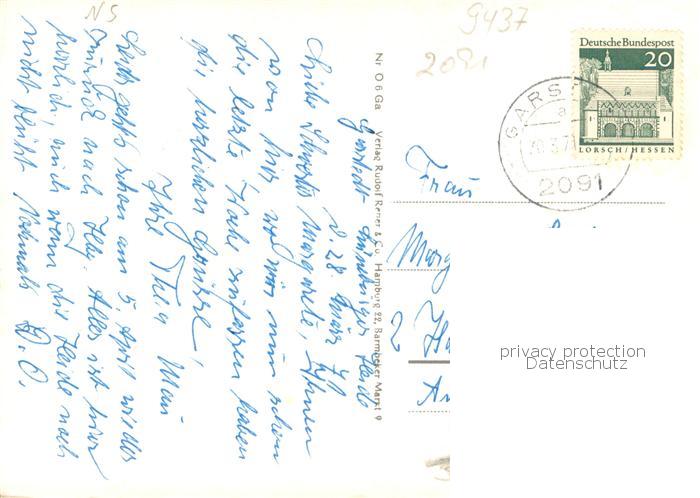 NS
9437
2091
Deutsche Bundespost
20
LORSCH/HESSEN
GARS
a
2091
Nr. O 6 Ga Verlag Rudolf Reher & Co., Hamburg 22, Barmbeker Markt 9
Garstedt - Lüneburger Heide
d. 28. März 71
Liebe Schwester Margarete, Ihnen
von hier wo wir nun schon
die letzte Woche
haben
die herzlichen Grüsse!
Ihre
Leider geht's schon am 5. April wieder
zurück nach Hbg. Alles ist hier
herrlich, auch wenn die Heide noch
nicht blüht. Nochmals
Frau
Marg
2 Ha
An
privacy protection
Datenschutz